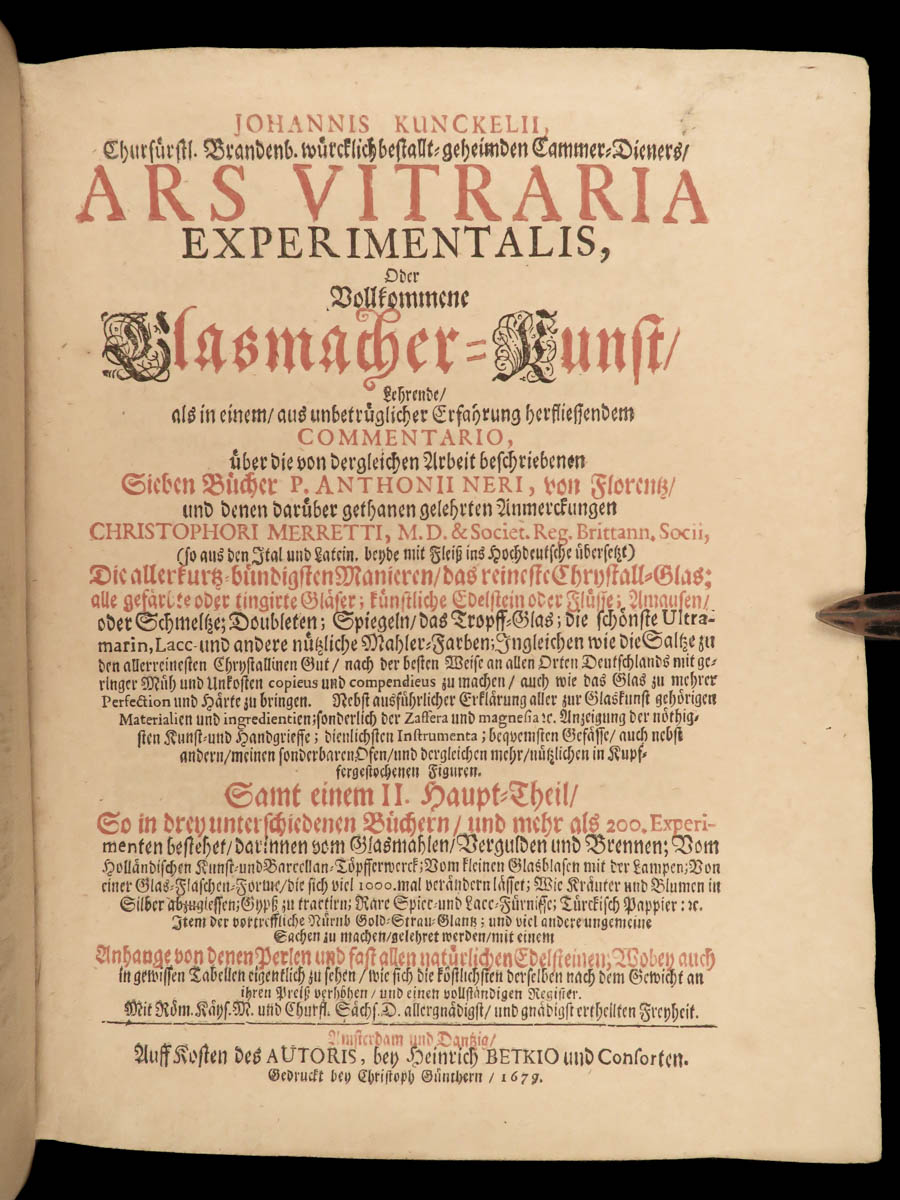 JOHANNIS KUNCKELII,
Churfürstl. Brandenb. würcklich bestallt-geheimden Cammer-Dieners/
ARS VITRARIA
EXPERIMENTALIS,
Oder
Vollkommene
Glasmacher-Kunst/
Lehrende/
als in einem/ aus unbetrüglicher Erfahrung herfliessendem
COMMENTARIO,
über die von dergleichen Arbeit beschriebenen
Sieben Bücher P. ANTHONII NERI, von Florentz/
und denen darüber gethanen gelehrten Anmerckungen
CHRISTOPHORI MERRETTI, M. D. & Societ. Reg. Brittann. Socii,
(so aus den Ital und Latein. beyde mit Fleiß ins Hochdeutsche übersetzt)
Die allerkurtz-bündigsten Manieren/ das reineste Chrystall-Glas;
alle gefärbte oder tingirte Gläser; künstliche Edelstein oder Flüsse; Amausen/
oder Schmeltze; Doubleten; Spiegeln/ das Tropff-Glas; die schönste Ultra-
marin, Lacc- und andere nützliche Mahler-Farben; Ingleichen wie die Saltze zu
den allerreinesten Chrystallinen Gut/ nach der besten Weise an allen Orten Deutschlands mit ge-
ringer Müh und Unkosten copieus und compendieus zu machen/ auch wie das Glas zu mehrer
Perfection und Härte zu bringen. Nebst ausführlicher Erklärung aller zur Glaskunst gehörigen
Materialien und ingredientien; sonderlich der Zaffera und magnesia ꝛc. Anzeigung der nöthig-
sten Kunst- und Handgrieffe; dienlichsten Instrumenta; beqvemsten Gefässe/ auch nebst
andern/ meinen sonderbaren Ofen/ und dergleichen mehr/ nützlichen in Kupf-
fergestochenen Figuren.
Samt einem II. Haupt-Theil/
So in drey unterschiedenen Büchern/ und mehr als 200. Experi-
menten bestehet/ darinnen vom Glasmahlen/ Vergulden und Brennen; Vom
Holländischen Kunst- und Barcellan-Töpfferwerck; Vom kleinen Glasblasen mit der Lampen; Von
einer Glas-Flaschen-Forme/ die sich viel 1000. mal verändern lässet; Wie Kräuter und Blumen in
Silber abzugiessen; Gypß zu tractirn; Rare Spicc- und Lacc-Fürnisse; Türckisch Pappier: ꝛc.
Item der vortreffliche Nürnb Gold-Strau-Glantz; und viel andere ungemeine
Sachen zu machen/ gelehret werden/ mit einem
Anhange von denen Perlen und fast allen natürlichen Edelsteinen; Wobey auch
in gewissen Tabellen eigentlich zu sehen/ wie sich die köstlichsten derselben nach dem Gewicht an
ihren Preiß verhöhen/ und einen vollständigen Register.
Mit Röm. Käys. M. und Churfl. Sächs. D. allergnädigst/ und gnädigst ertheilten Freyheit.
Amsterdam und Dantzig/
Auff Kosten des AUTORIS, bey Heinrich BETKIO und Consorten.
Gedruckt bey Christoph Günthern/ 1679.